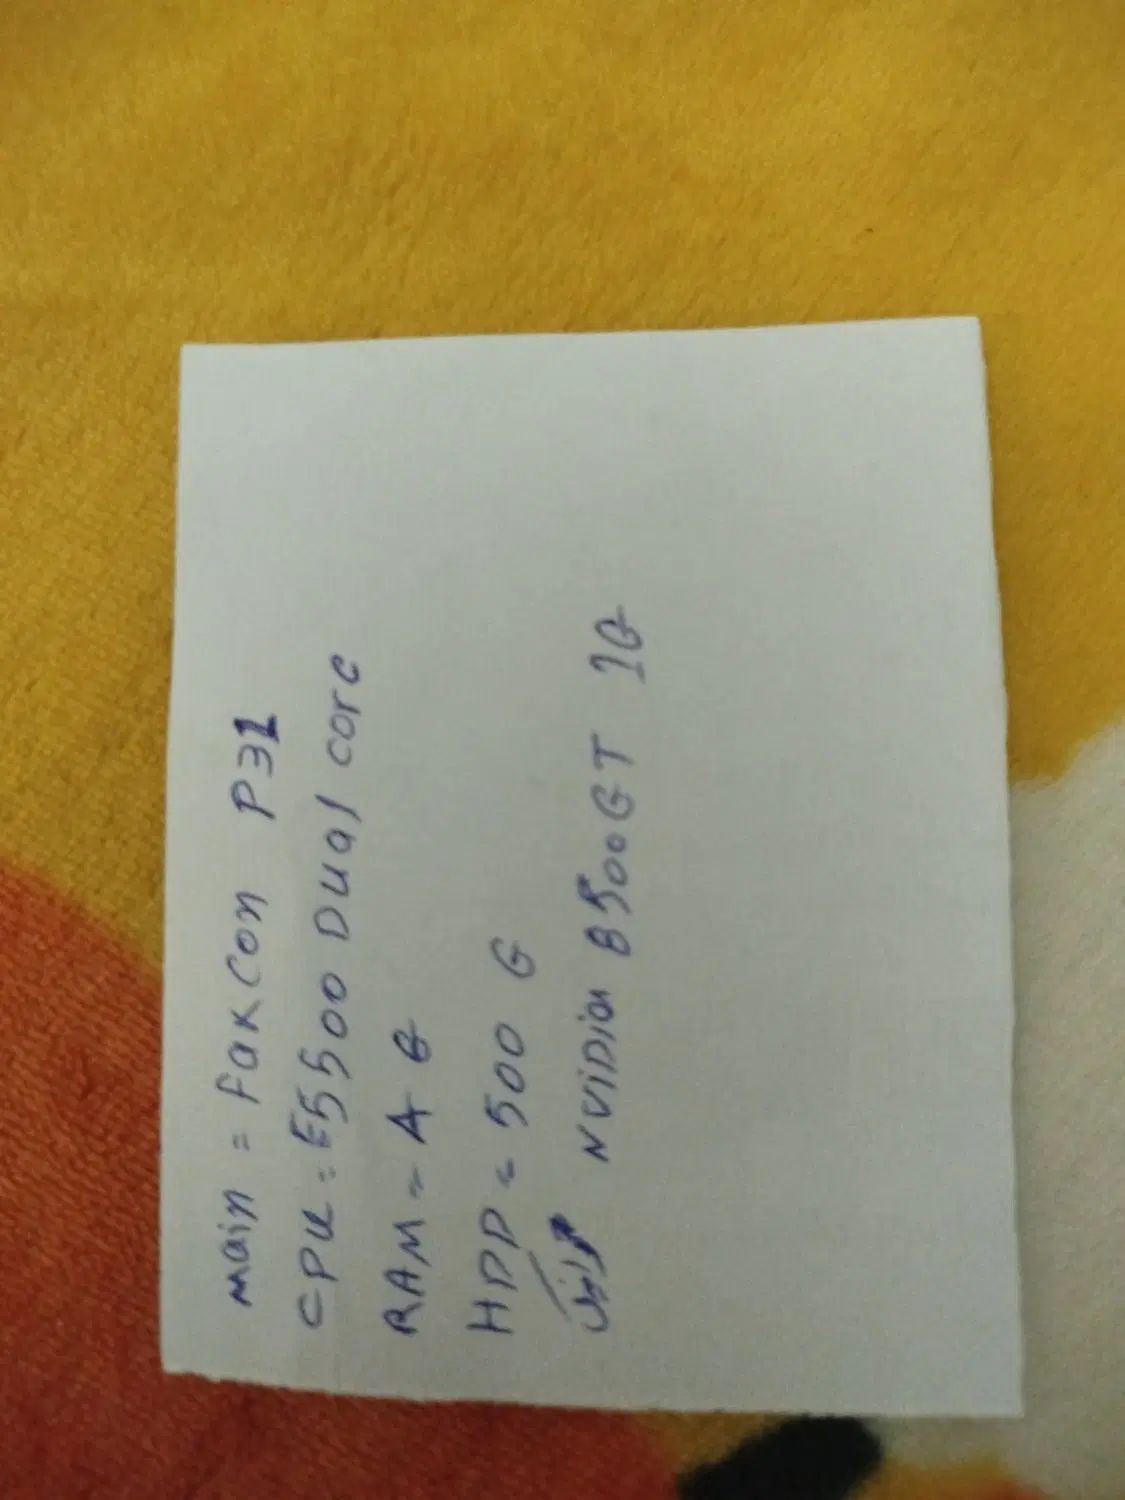 main = fakcon P31
CPU = E5500 Dual core
RAM = 4 G
HDD = 500 G
NVIDIA 8500GT 1G